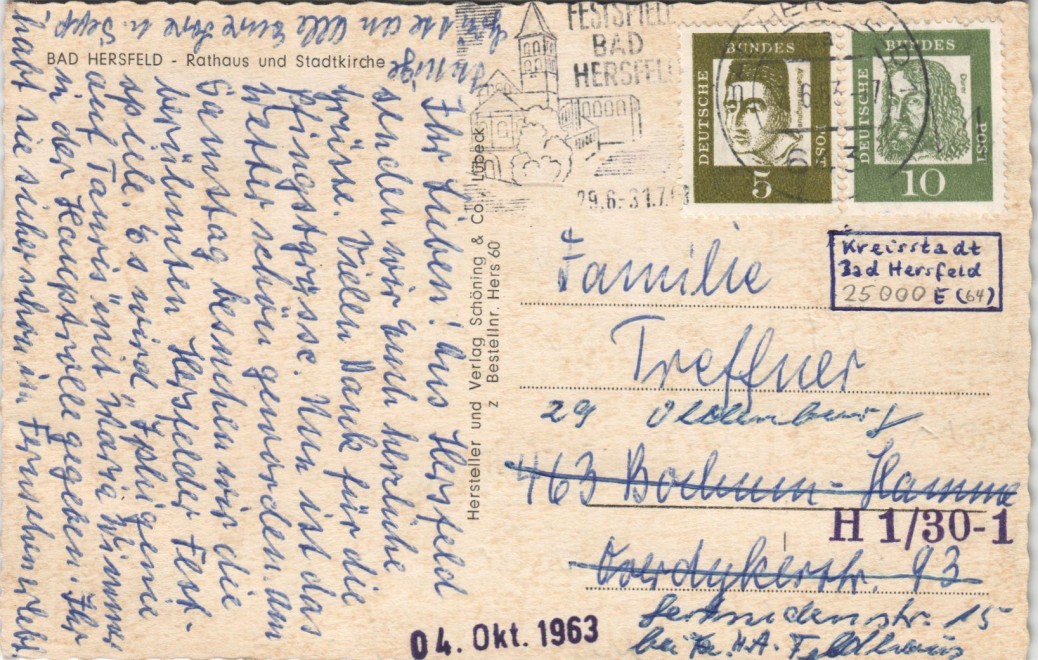 BAD HERSFELD - Rathaus und Stadtkirche
Ihr Lieben! Aus Hersfeld
senden wir Euch herzliche
Grüsse. Vielen Dank für die
Pfingstgrüsse. Nun ist das
Wetter schön geworden. Am
Samstag besuchen wir die
berühmten Hersfelder Fest-
spiele. Es wird "Iphigenie
auf Tauris" mit Maria Wimmer
in der Hauptrolle gegeben. Ihr
habt sie sicher schon im Fernsehen erlebt.
Innige
Grüsse an alle Eure Lore u. Sepp
Hersteller und Verlag Schöning & Co., Lübeck
z Bestellnr. Hers 60
FESTSPIELE
BAD
HERSFELD
29.6.-31.7.63
DEUTSCHE
BUNDES
POST
5
DEUTSCHE
BUNDES
POST
Dürer
10
Kreisstadt
Bad Hersfeld
25000 E (64)
Familie
Treffner
29 Oldenburg
463 Bochum-Hamme
H 1/30-1
Overdykerstr. 93
Gertrudenstr. 15
bei Fa. H.A. Feldhaus
04. Okt. 1963